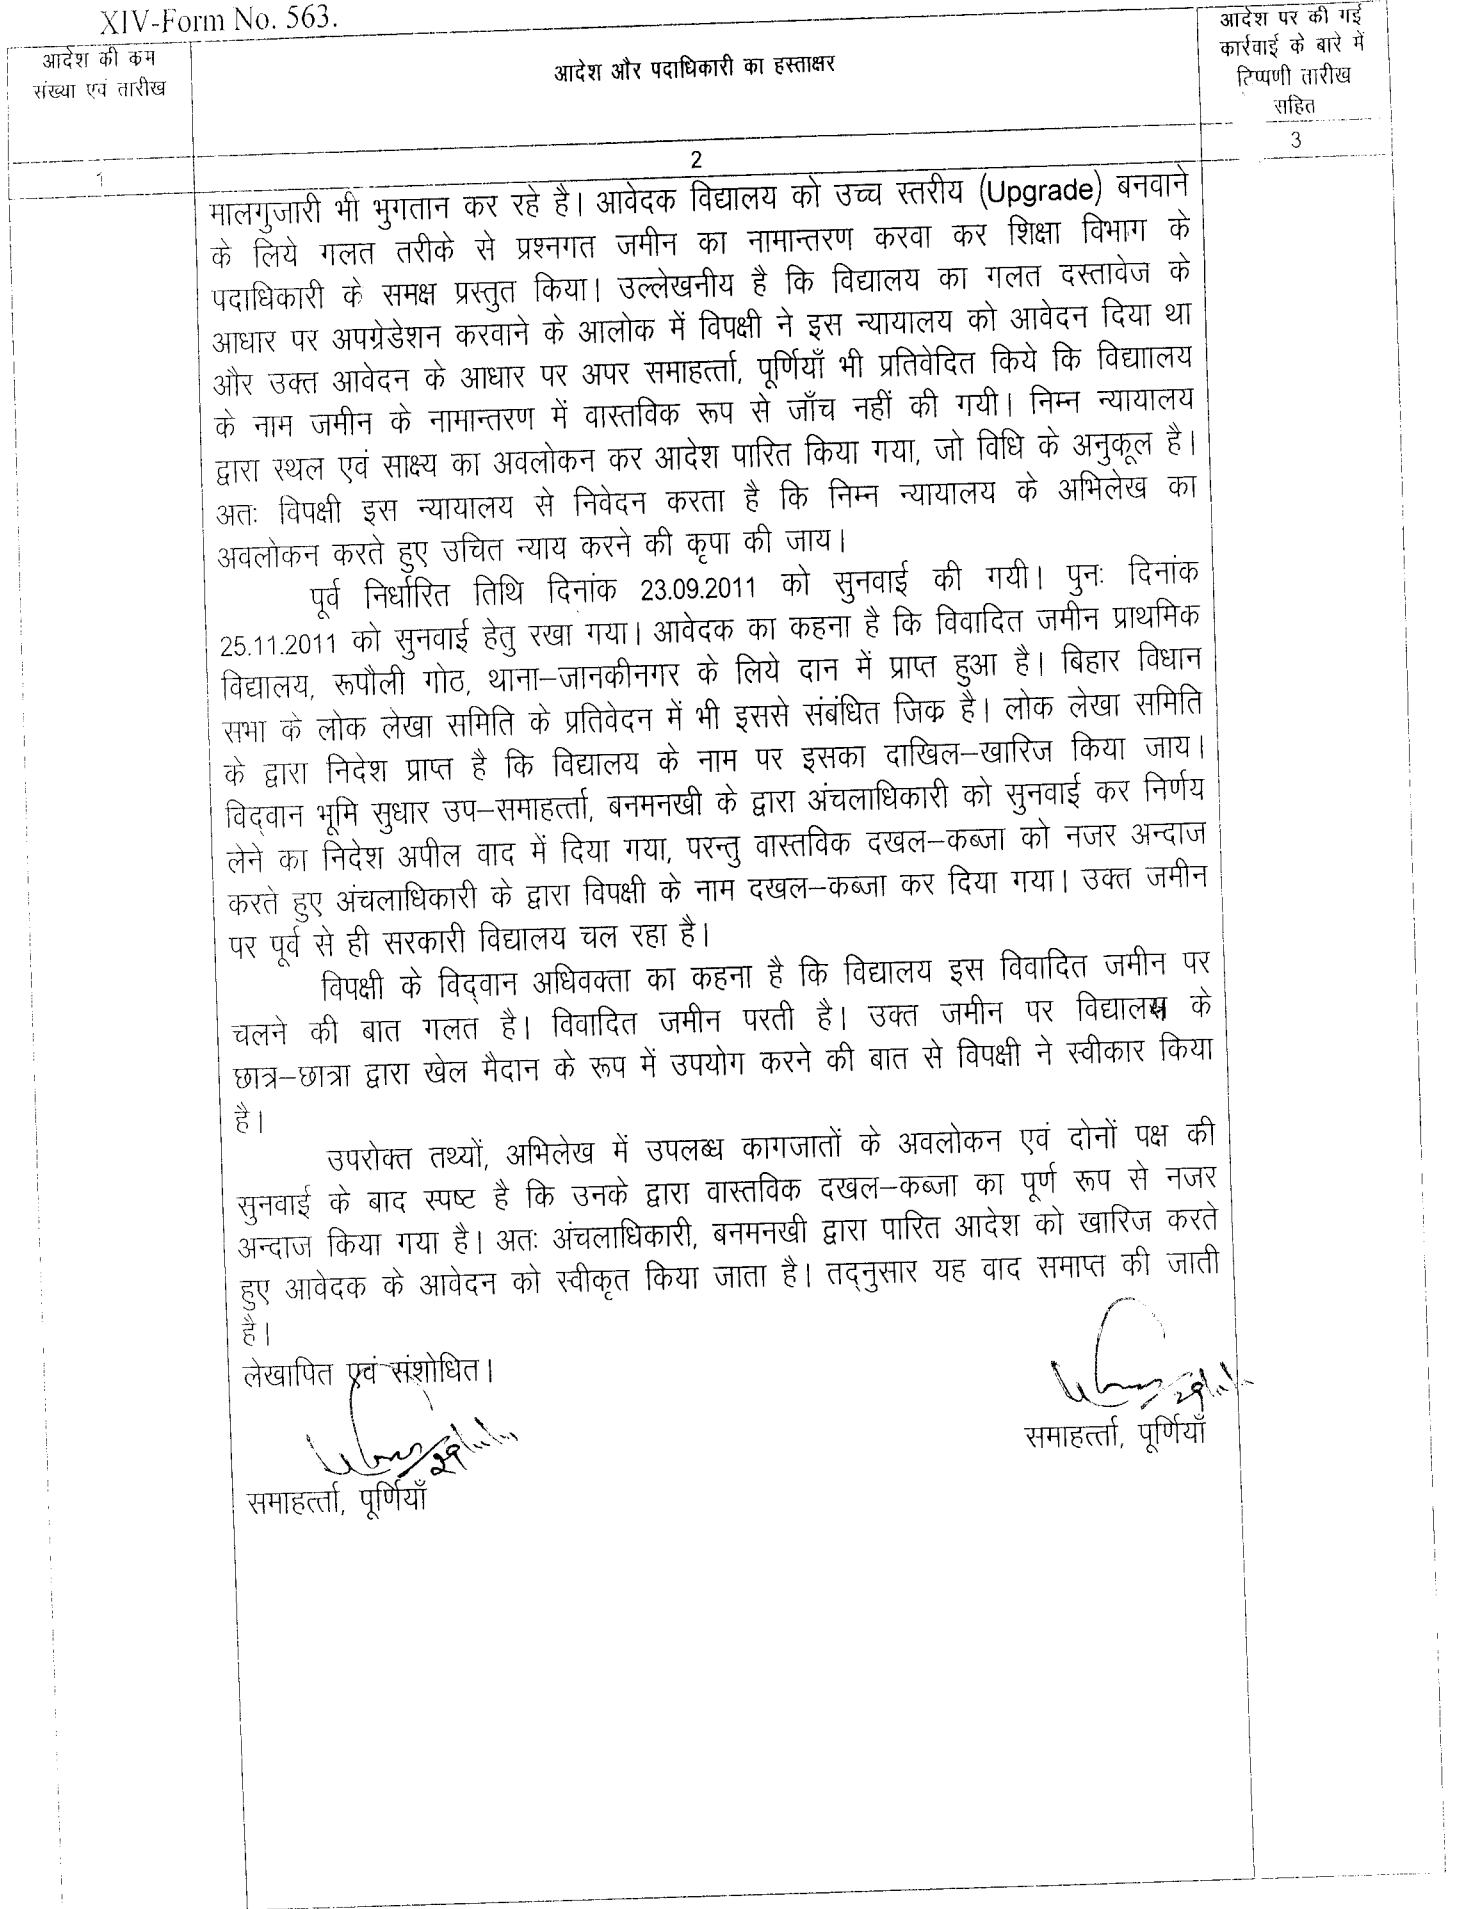 XIV-Form No. 563.
आदेश की कम
संख्या एवं तारीख
आदेश और पदाधिकारी का हस्ताक्षर
आदेश पर की गई
कार्रवाई के बारे में
टिप्पणी तारीख
सहित
1
2
3
मालगुजारी भी भुगतान कर रहे है। आवेदक विद्यालय को उच्च स्तरीय (Upgrade) बनवाने
के लिये गलत तरीके से प्रश्नगत जमीन का नामान्तरण करवा कर शिक्षा विभाग के
पदाधिकारी के समक्ष प्रस्तुत किया। उल्लेखनीय है कि विद्यालय का गलत दस्तावेज के
आधार पर अपग्रेडेशन करवाने के आलोक में विपक्षी ने इस न्यायालय को आवेदन दिया था
और उक्त आवेदन के आधार पर अपर समाहर्त्ता, पूर्णियाँ भी प्रतिवेदित किये कि विद्याालय
के नाम जमीन के नामान्तरण में वास्तविक रूप से जाँच नहीं की गयी। निम्न न्यायालय
द्वारा स्थल एवं साक्ष्य का अवलोकन कर आदेश पारित किया गया, जो विधि के अनुकूल है।
अतः विपक्षी इस न्यायालय से निवेदन करता है कि निम्न न्यायालय के अभिलेख का
अवलोकन करते हुए उचित न्याय करने की कृपा की जाय।
पूर्व निर्धारित तिथि दिनांक 23.09.2011 को सुनवाई की गयी। पुनः दिनांक
25.11.2011 को सुनवाई हेतु रखा गया। आवेदक का कहना है कि विवादित जमीन प्राथमिक
विद्यालय, रूपौली गोठ, थाना–जानकीनगर के लिये दान में प्राप्त हुआ है। बिहार विधान
सभा के लोक लेखा समिति के प्रतिवेदन में भी इससे संबंधित जिक है। लोक लेखा समिति
के द्वारा निदेश प्राप्त है कि विद्यालय के नाम पर इसका दाखिल–खारिज किया जाय।
विद्वान भूमि सुधार उप–समाहर्त्ता, बनमनखी के द्वारा अंचलाधिकारी को सुनवाई कर निर्णय
लेने का निदेश अपील वाद में दिया गया, परन्तु वास्तविक दखल–कब्जा को नजर अन्दाज
करते हुए अंचलाधिकारी के द्वारा विपक्षी के नाम दखल–कब्जा कर दिया गया। उक्त जमीन
पर पूर्व से ही सरकारी विद्यालय चल रहा है।
विपक्षी के विद्वान अधिवक्ता का कहना है कि विद्यालय इस विवादित जमीन पर
चलने की बात गलत है। विवादित जमीन परती है। उक्त जमीन पर विद्यालय के
छात्र–छात्रा द्वारा खेल मैदान के रूप में उपयोग करने की बात से विपक्षी ने स्वीकार किया
है।
उपरोक्त तथ्यों, अभिलेख में उपलब्ध कागजातों के अवलोकन एवं दोनों पक्ष की
सुनवाई के बाद स्पष्ट है कि उनके द्वारा वास्तविक दखल–कब्जा का पूर्ण रूप से नजर
अन्दाज किया गया है। अतः अंचलाधिकारी, बनमनखी द्वारा पारित आदेश को खारिज करते
हुए आवेदक के आवेदन को स्वीकृत किया जाता है। तद्नुसार यह वाद समाप्त की जाती
है।
लेखापित एवं संशोधित।
समाहर्त्ता, पूर्णियाँ
समाहर्त्ता, पूर्णियाँ